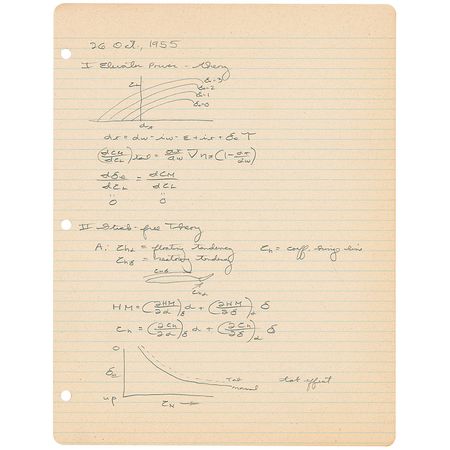 26 Oct., 1955
I Elevator Power - theory
C_L
δe-3
δe-2
δe-1
δe-0
α_s
αs = αw - iw - ε + is + δe τ
(dCM/dCL)tail = at/aw V̄ ηs (1 - dε/dα)
dδe/dCL = dCM/dCL
0 0
II Stick-free Theory
A: Chα = floating tendency Ch = coeff. hinge
Chδ = restoring tendency
Chδ
Chα
HM = (∂HM/∂α)δ α + (∂HM/∂δ)α δ
Ch = (∂Ch/∂α)δ α + (∂Ch/∂δ)α δ
0
δe
Tab
manual
tab effect
up
C_N →